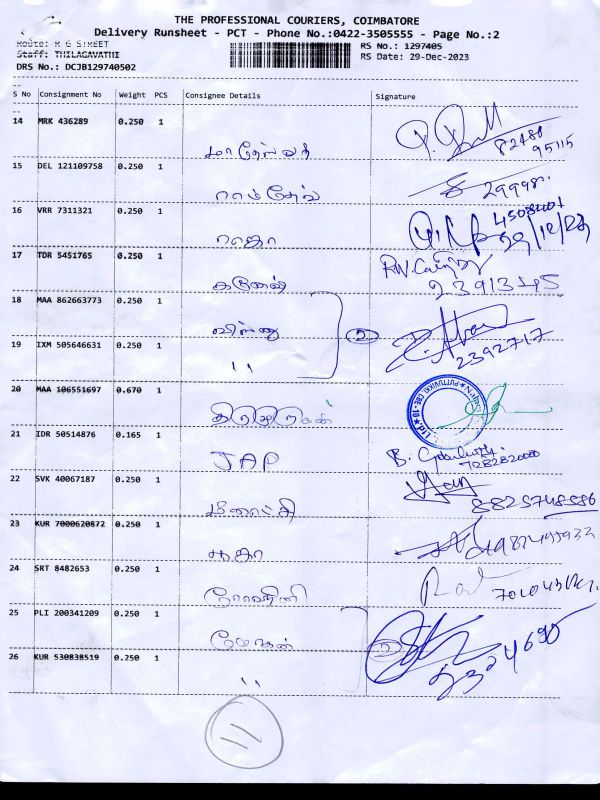 THE PROFESSIONAL COURIERS, COIMBATORE
Delivery Runsheet - PCT - Phone No.:0422-3505555 - Page No.:2
Route: M G STREET
RS No.: 1297405
Staff: THILAGAVATHI
RS Date: 29-Dec-2023
DRS No.: DCJB129740502
S No Consignment No Weight PCS Consignee Details Signature
14 MRK 436289 0.250 1
82480
95115
15 DEL 121109758 0.250 1
ராம்தேவ்
29998
16 VRR 7311321 0.250 1
ராஜா
4508401
29/12/23
17 TDR 5451765 0.250 1
கருணை
2391345
18 MAA 862663773 0.250 1
விஸ்னு
2
19 IXM 505646631 0.250 1
"
2392717
20 MAA 106551697 0.670 1
21 IDR 50514876 0.165 1
JAP
7282820000
22 SVK 40067187 0.250 1
மீனாட்சி
8825748586
23 KUR 7000620872 0.250 1
24 SRT 8482653 0.250 1
ரோஷினி
25 PLI 200341209 0.250 1
மோகன்
2
2324690
26 KUR 530838519 0.250 1
"
11